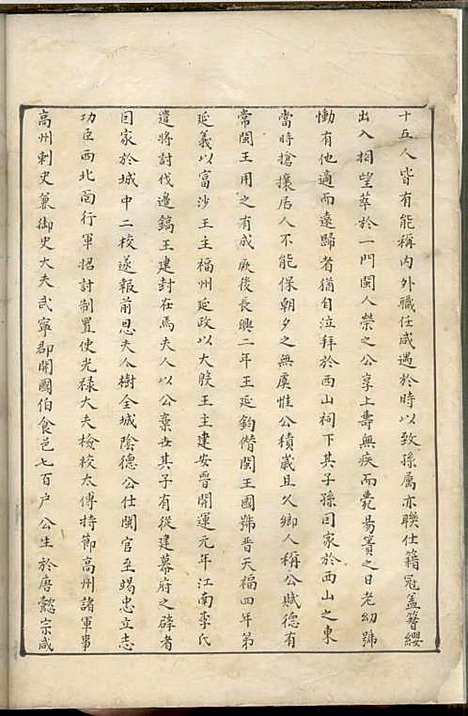 十五人皆有能稱內外職任咸遇於時以致孫屬亦聯仕籍冠盖簪纓
出入相望萃於一門閩人榮之公享上壽無疾而薨昜簀之日老幼號
慟有他適而遠歸者猶匍泣拜於西山祠下其子孫因家於西山之東
當時搶攘居人不能保朝夕之無虞惟公積歲且久鄉人稱公賦德有
常閩王用之有成厥後長興二年王延鈞僭閩王國號晉天福四年弟
延義以富沙王主福州延政以大殷王主建安晉開運元年江南李氏
遣將討伐邊鎬王建封在焉夫人以公棄世其子有從建幕府之辟者
囙家於城中二校遂報前恩夫人樹全城陰德公仕閩官至竭忠立志
功臣西北面行軍招討制置使光禄大夫檢校太傅持節高州諸軍事
高州刺史兼御史大夫武寧郡開國伯食邑七百户公生於唐懿宗咸